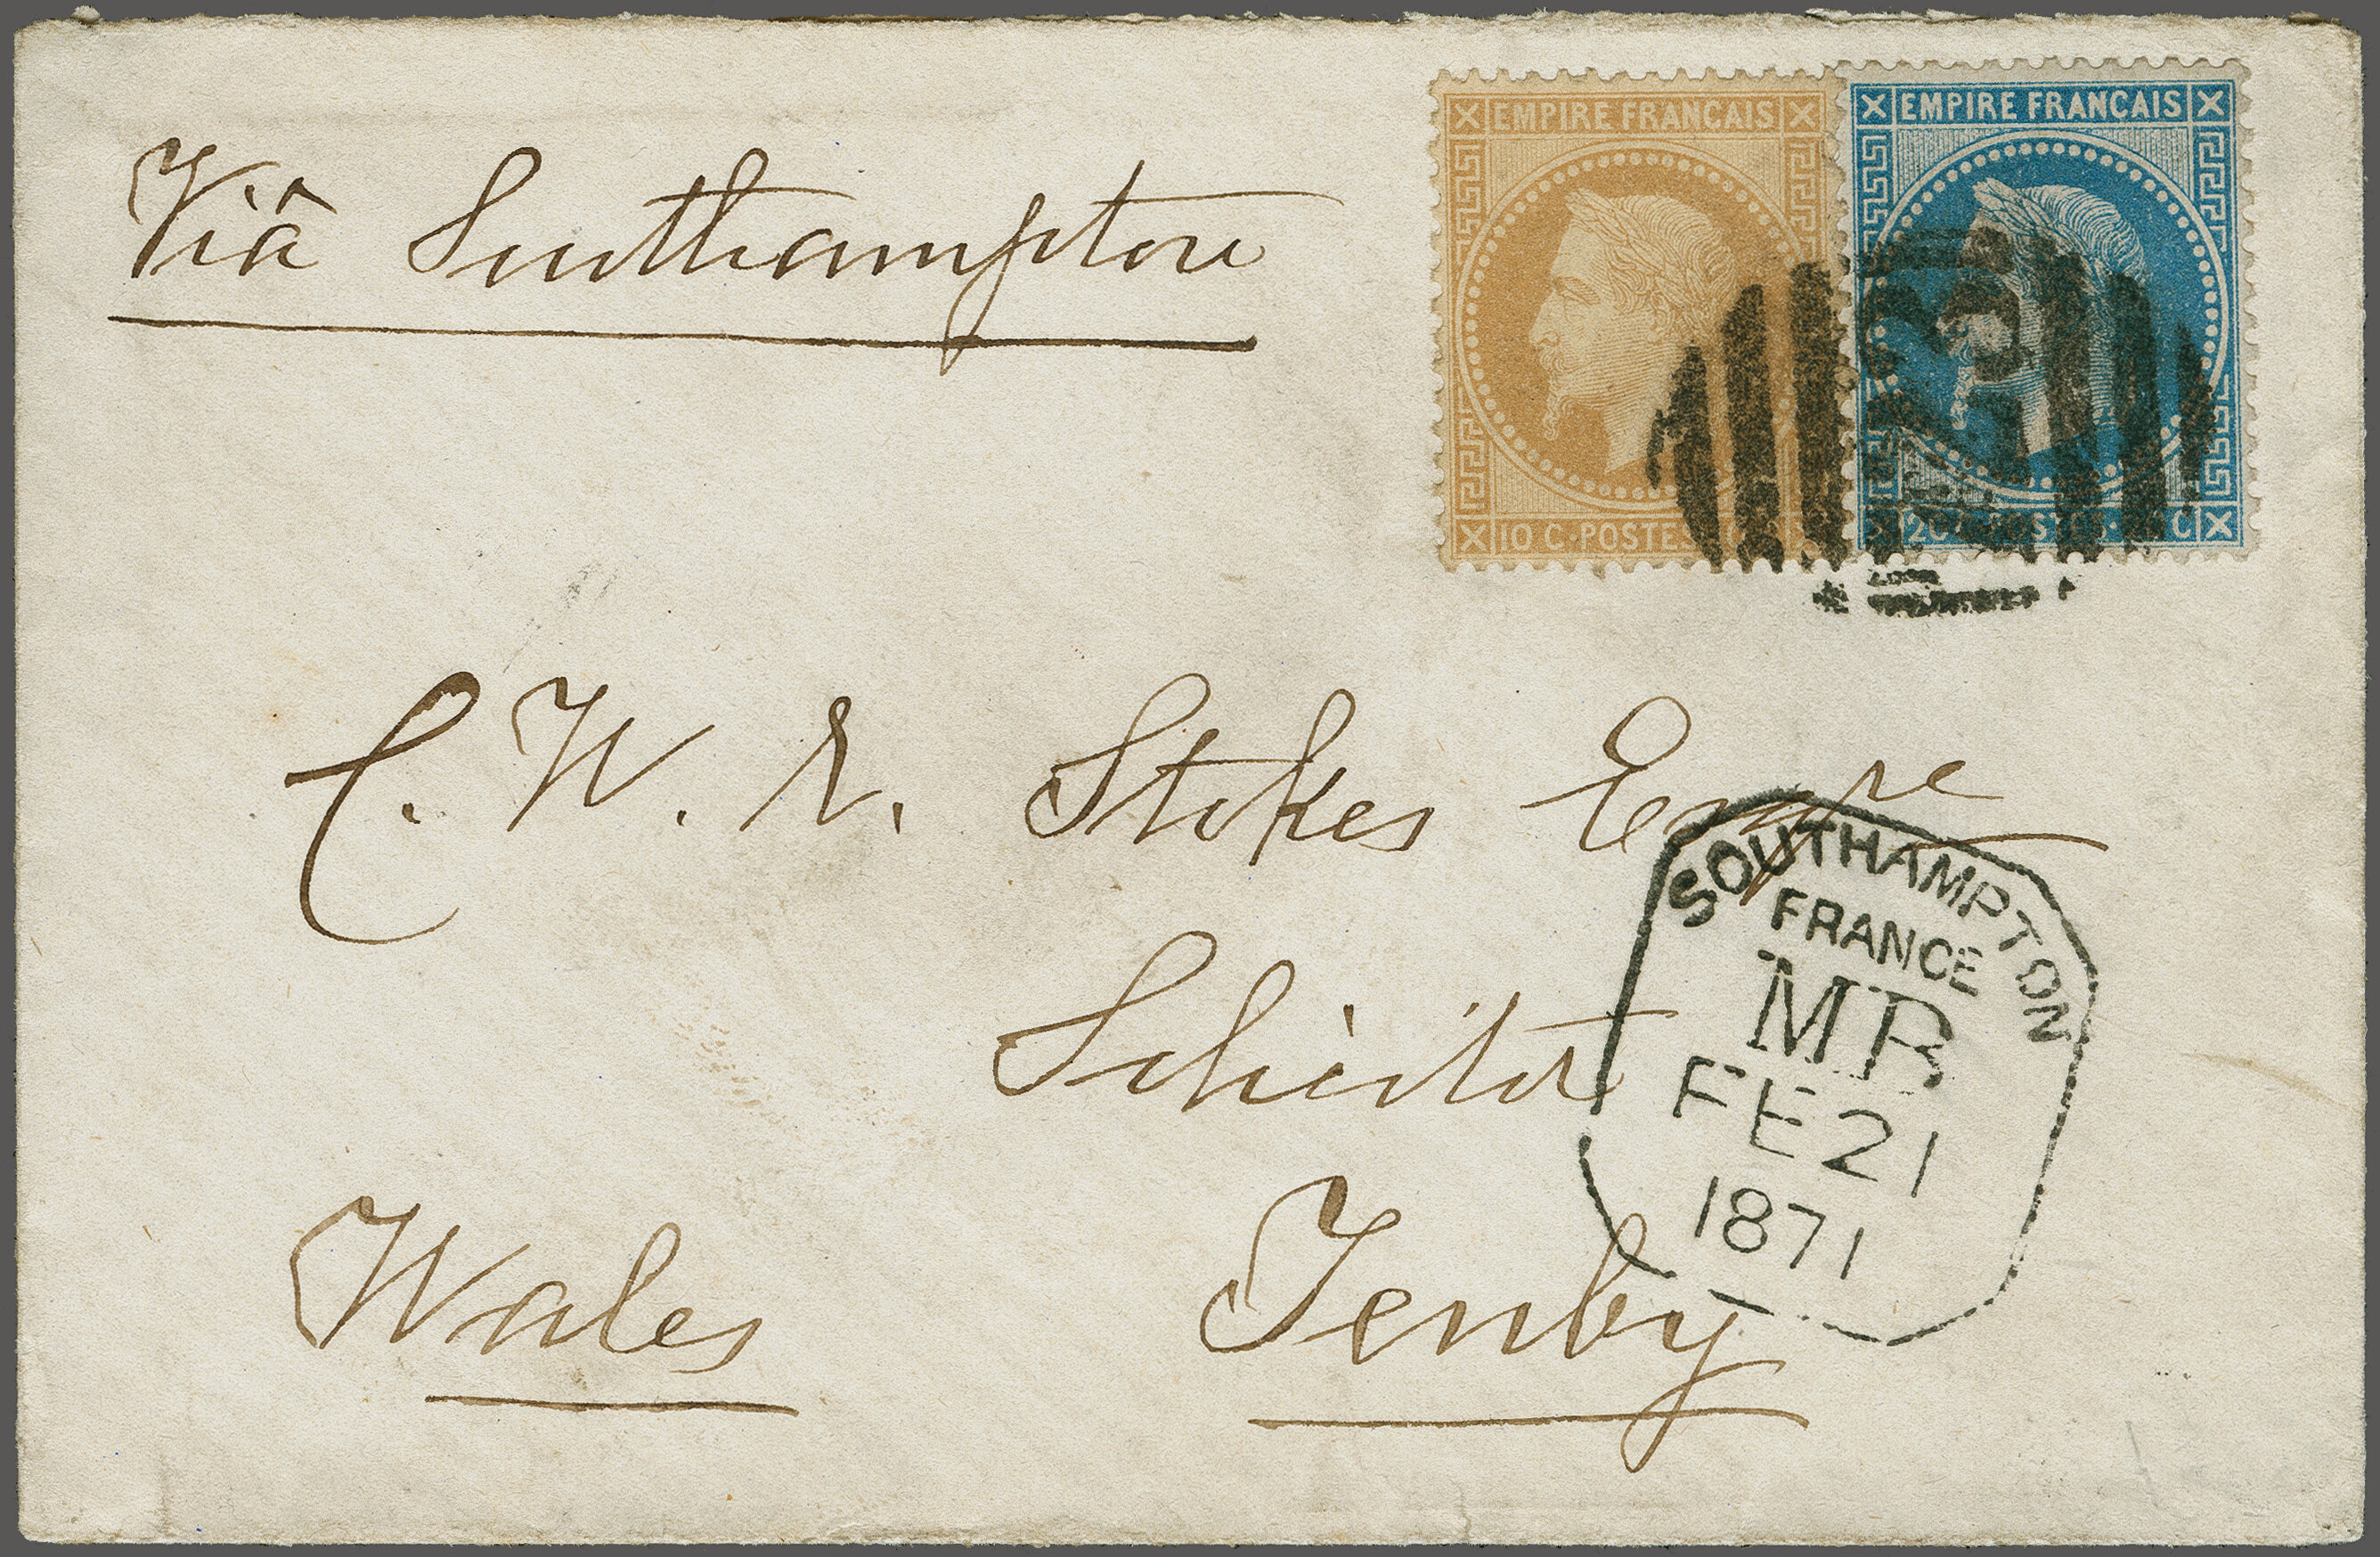 EMPIRE FRANCAIS
EMPIRE FRANCAIS
10 C. POSTES
Viâ Southampton
C. W. R. Stokes Esqre
Solicitor
Wales Tenby
SOUTHAMPTON
FRANCE
MR
FE 21
1871